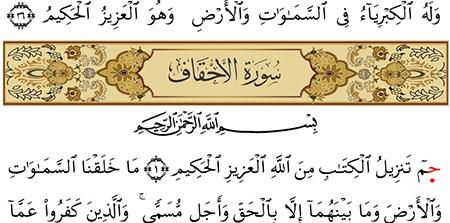 وَلَهُ ٱلْكِبْرِيَآءُ فِى ٱلسَّمَـٰوَٰتِ وَٱلْأَرْضِ وَهُوَ ٱلْعَزِيزُ ٱلْحَكِيمُ ٣٦
سُورَةُ الأَحْقَافِ
بِسْمِ ٱللَّهِ ٱلرَّحْمَـٰنِ ٱلرَّحِيمِ
حمٓ تَنزِيلُ ٱلْكِتَـٰبِ مِنَ ٱللَّهِ ٱلْعَزِيزِ ٱلْحَكِيمِ ١ مَا خَلَقْنَا ٱلسَّمَـٰوَٰتِ
وَٱلْأَرْضَ وَمَا بَيْنَهُمَآ إِلَّا بِٱلْحَقِّ وَأَجَلٍ مُّسَمًّى ۚ وَٱلَّذِينَ كَفَرُوا۟ عَمَّآ